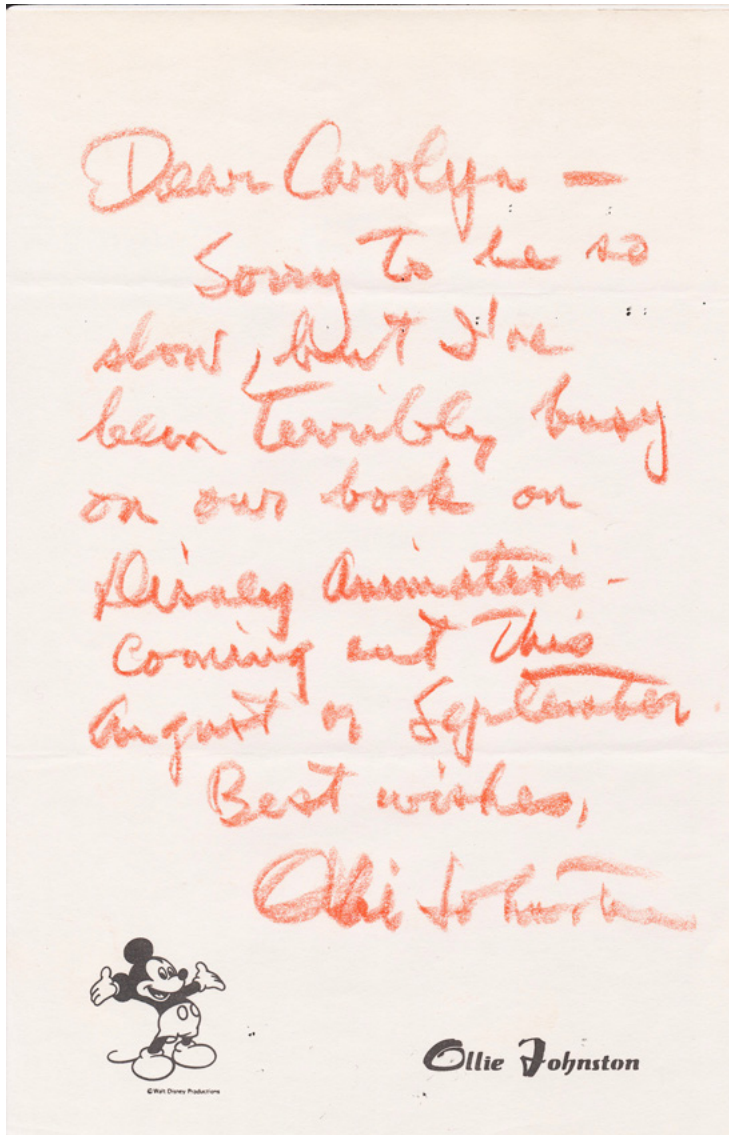 Dear Carolyn —
Sorry to be so
slow, but I've
been terribly busy
on our book on
Disney Animation -
coming out this
August or September.
Best wishes,
Ollie Johnston
© Walt Disney Productions
Ollie Johnston